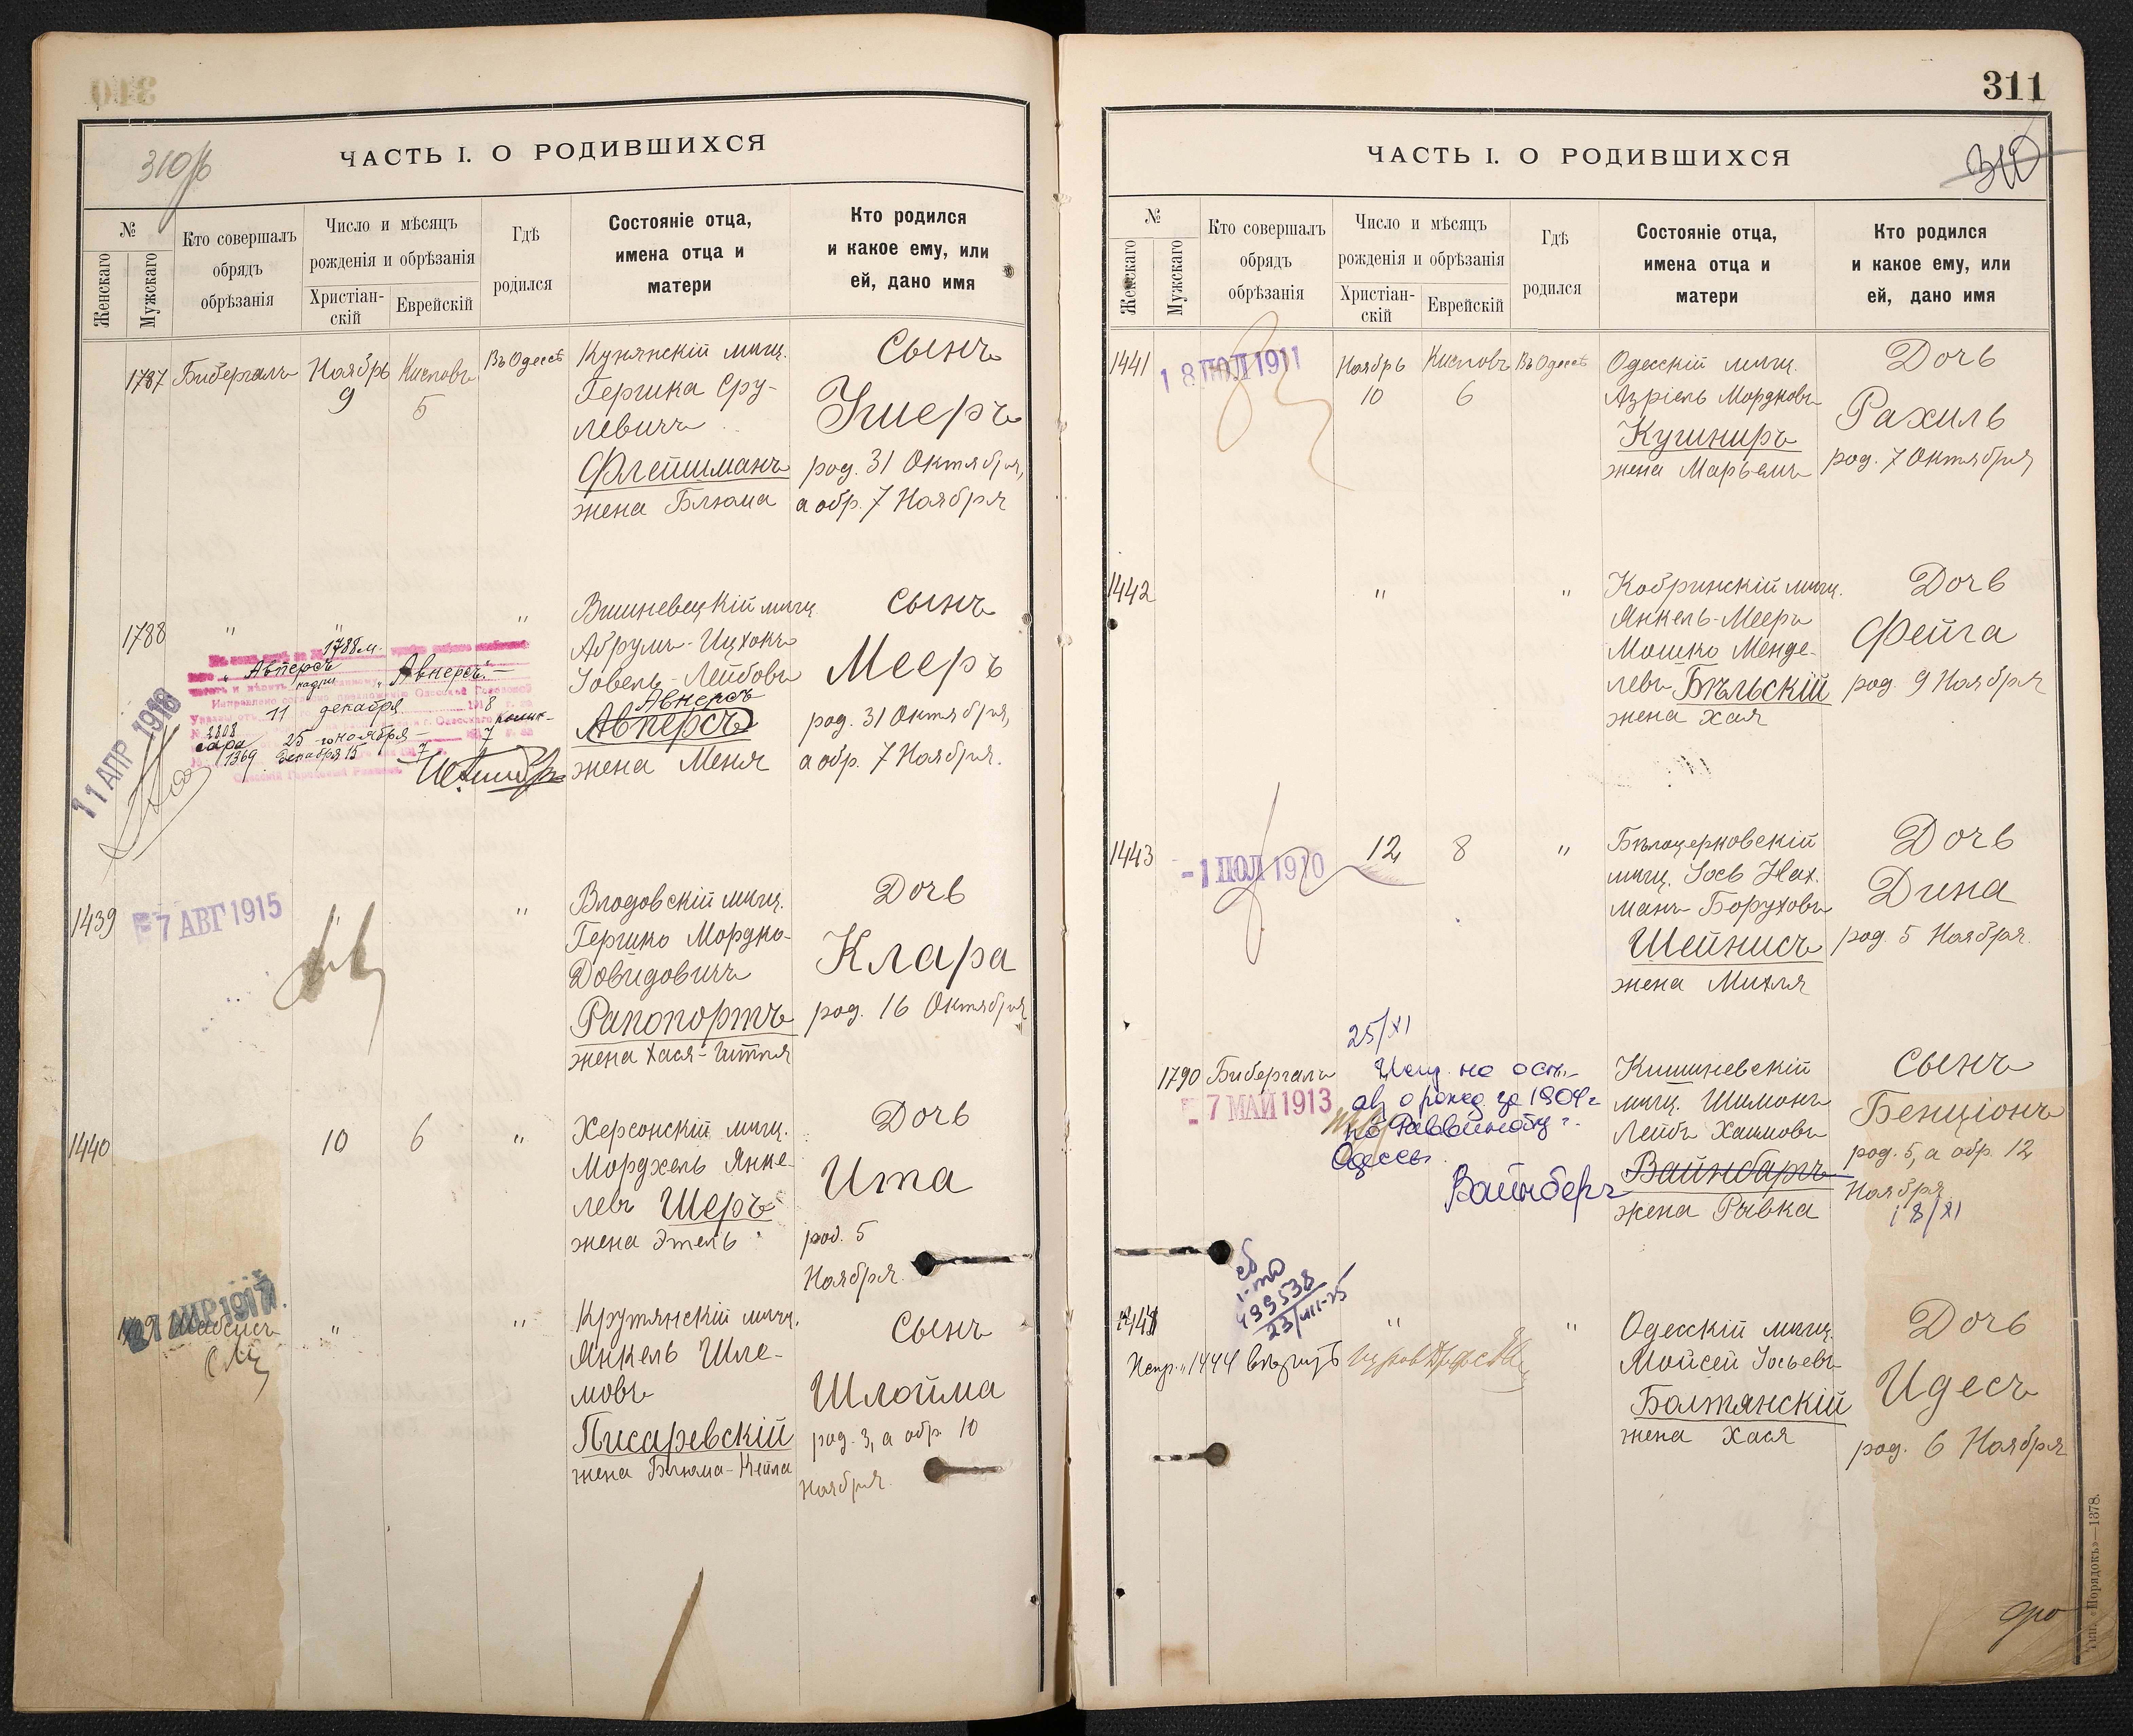 310
310/б
ЧАСТЬ I. О РОДИВШИХСЯ
№
Женскаго
Мужскаго
Кто совершалъ
обрядъ
обрѣзанія
Число и мѣсяцъ
рожденія и обрѣзанія
Христіан-
скій
Еврейскій
Гдѣ
родился
Состояніе отца,
имена отца и
матери
Кто родился
и какое ему, или
ей, дано имя
1787 Бибергалъ Ноябрь 9 Кислов 5 Въ Одессѣ
мѣщ.
Гершка Сру-
левичъ
Флейшманъ
жена Блюма
Сынъ
Ушеръ
род. 31 Октября,
а обр. 7 Ноября
1788 " " "
1788 м.
Авперсъ
Авнерсъ
11 декабря 1918
25 ноября
1369 Декабря 15
11 АПР 1918
Вишневецкій мѣщ.
Абрумъ-Ицхокъ
Іовель-Лейбовъ
Авнерсъ
Авперсъ
жена Меня
Сынъ
Мееръ
род. 31 Октября,
а обр. 7 Ноября.
1439
7 АВГ 1915
" "
Влодовскій мѣщ.
Гершко Мордко-
Довидовичъ
Рапопортъ
жена Хася-Итля
Дочь
Клара
род. 16 Октября
1440 10 6 "
Херсонскій мѣщ.
Морджель Янке-
левъ Шеръ
жена Этель
Дочь
Ита
род. 5
Ноября.
1917
" "
Крутянскій мѣщ.
Янкель Шле-
мовъ
Писаревскій
жена Блюма-Кейла
Сынъ
Шлойма
род. 3, а обр. 10
Ноября.
311
310
ЧАСТЬ I. О РОДИВШИХСЯ
№
Женскаго
Мужскаго
Кто совершалъ
обрядъ
обрѣзанія
Число и мѣсяцъ
рожденія и обрѣзанія
Христіан-
скій
Еврейскій
Гдѣ
родился
Состояніе отца,
имена отца и
матери
Кто родился
и какое ему, или
ей, дано имя
1441
18 ІЮЛ 1911
Ноябрь 10 Кислов 6 Въ Одессѣ
Одесскій мѣщ.
Азріель Мордковъ
Кушниръ
жена Марьемъ
Дочь
Рахиль
род. 7 Октября
1442 " "
Кобринскій мѣщ.
Янкель-Мееръ
Мошко Менде-
левъ Бѣльскій
жена Хая
Дочь
Фейга
род. 9 Ноября
1443
-1 ІЮЛ 1910
12 8 "
Бѣлоцерковскій
мѣщ. Іось Нах.
манъ Боруховъ
Шейнисъ
жена Михля
Дочь
Дина
род. 5 Ноября.
1790 Бибергалъ
7 МАЙ 1913
25/XI
на осн.
о рожд. за 1909 г
Одессы.
Вайнберъ
Кишиневскій
мѣщ. Шимонъ
Лейбъ Хаимовъ
Вайнбаръ
жена Рывка
Сынъ
Бенціонъ
род. 5, а обр. 12
Ноября
18/XI
499538
23/VIII-25
Испр. 1444 вѣрить
" "
Одесскій мѣщ.
Мойсей Іосьевъ
Болтянскій
жена Хася
Дочь
Идесъ
род. 6 Ноября
Тип. «Порядокъ»—1378.